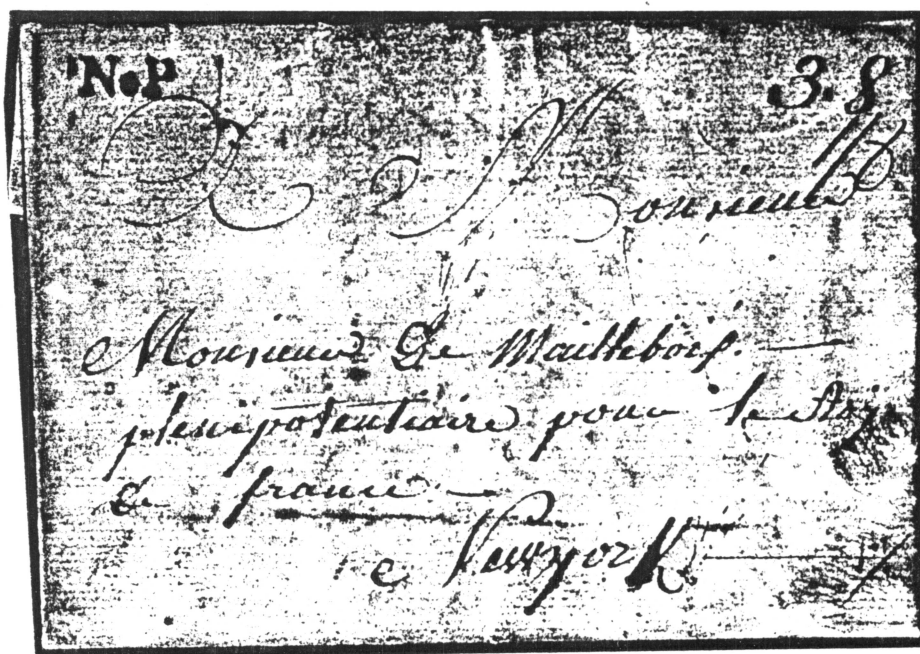 N.P 3.8
A Monsieur
Monsieur De Maillebois.
plenipotentiaire pour le Roy
de france
a Newyork